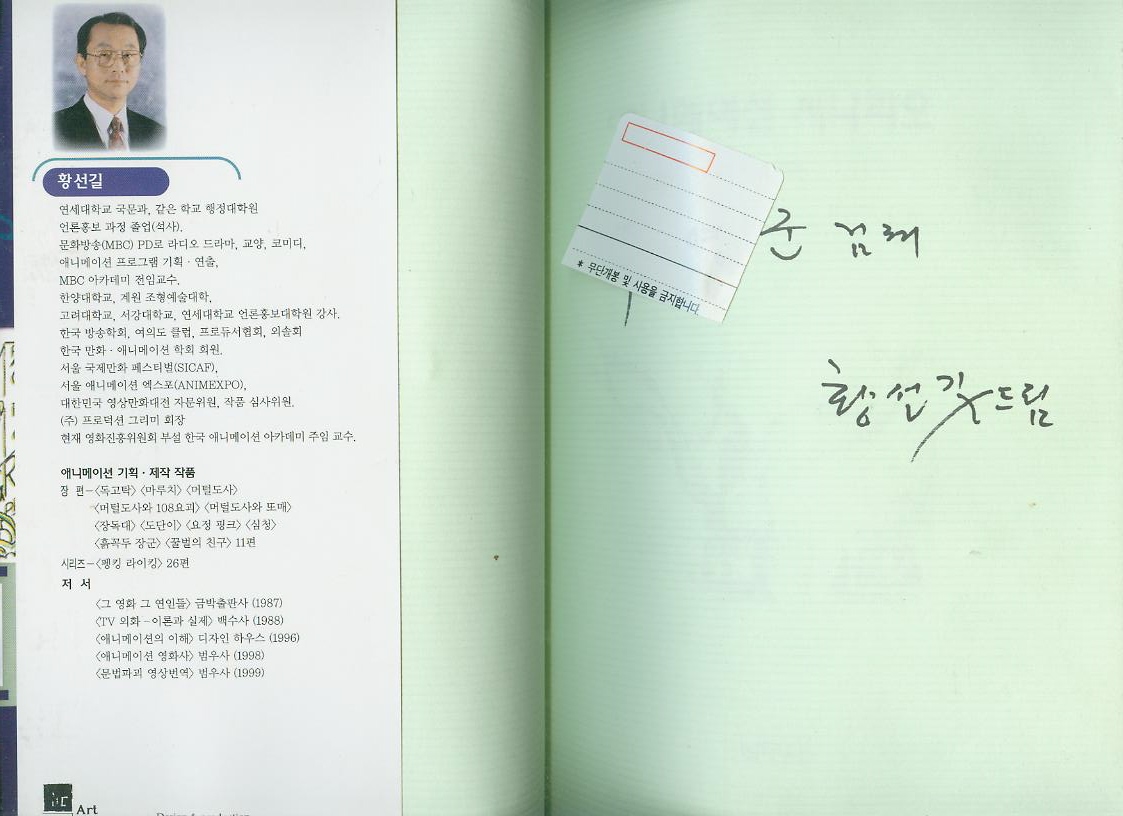 황선길
연세대학교 국문과, 같은 학교 행정대학원
언론홍보 과정 졸업(석사).
문화방송(MBC) PD로 라디오 드라마, 교양, 코미디,
애니메이션 프로그램 기획 · 연출,
MBC 아카데미 전임교수.
한양대학교, 계원 조형예술대학,
고려대학교, 서강대학교, 연세대학교 언론홍보대학원 강사.
한국 방송학회, 여의도 클럽, 프로듀서협회, 외솔회
한국 만화 · 애니메이션 학회 회원.
서울 국제만화 페스티벌(SICAF),
서울 애니메이션 엑스포(ANIMEXPO),
대한민국 영상만화대전 자문위원, 작품 심사위원.
(주) 프로덕션 그리미 회장
현재 영화진흥위원회 부설 한국 애니메이션 아카데미 주임 교수.
애니메이션 기획 · 제작 작품
장 편–〈독고탁〉 〈마루치〉 〈머털도사〉
〈머털도사와 108요괴〉 〈머털도사와 또매〉
〈장독대〉 〈도단이〉 〈요정 핑크〉 〈심청〉
〈흙꼭두 장군〉 〈꿀벌의 친구〉 11편
시리즈–〈펭킹 라이킹〉 26편
저 서
〈그 영화 그 연인들〉 금박출판사 (1987)
〈TV 외화–이론과 실제〉 백수사 (1988)
〈애니메이션의 이해〉 디자인 하우스 (1996)
〈애니메이션 영화사〉 범우사 (1998)
〈문법파괴 영상번역〉 범우사 (1999)
Art
* 무단개봉 및 사용을 금지합니다.
군
황선길 드림